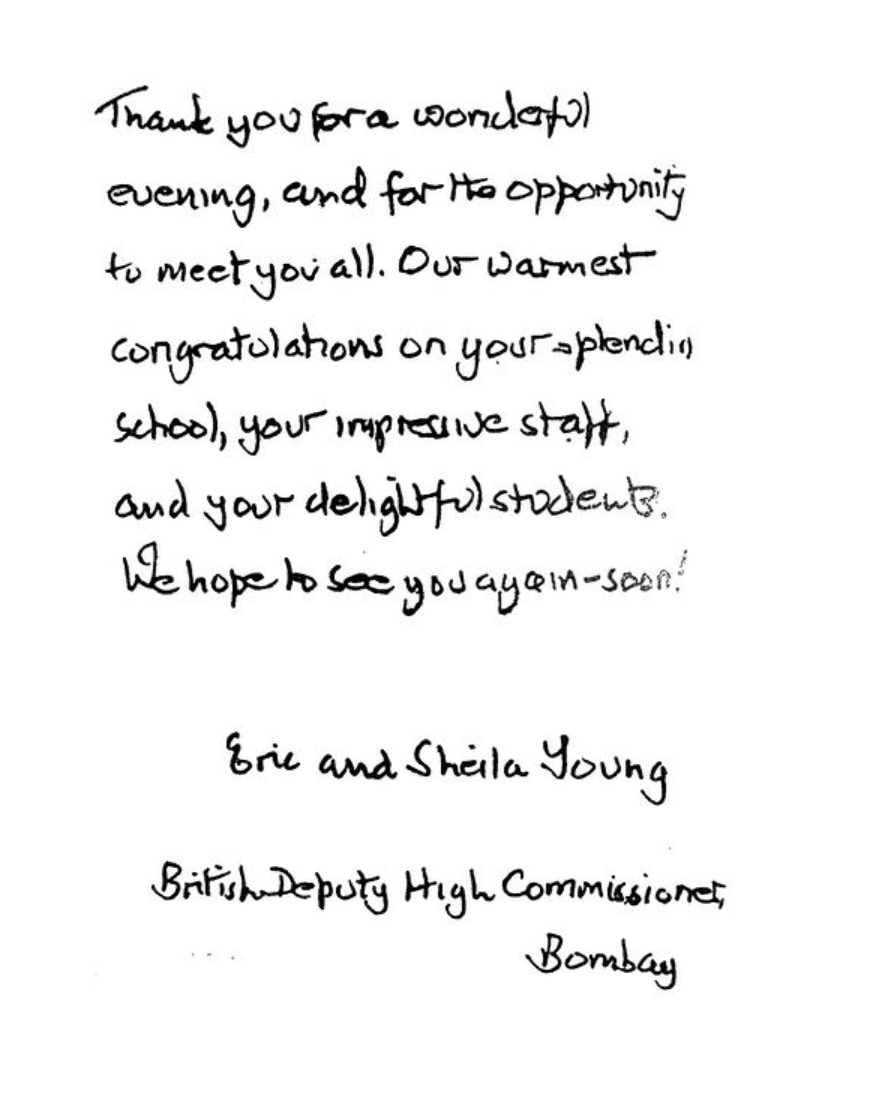 Thank you for a wonderful
evening, and for the opportunity
to meet you all. Our warmest
congratulations on your splendid
school, your impressive staff,
and your delightful students.
We hope to see you again - soon!
Eric and Sheila Young
British Deputy High Commissioner,
Bombay